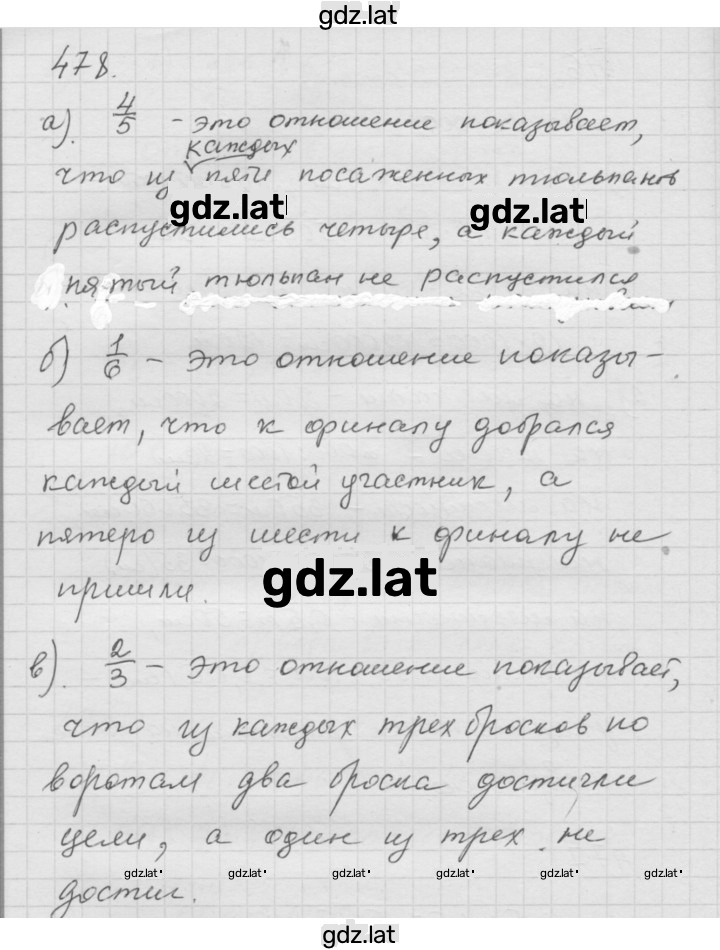 gdz.lat
478.
а). 4/5 - это отношение показывает,
каждых
что из пяти посаженных тюльпанов
gdz.lat gdz.lat
распустились четыре, а каждый
пятый тюльпан не распустился
б) 1/6 - это отношение показы-
вает, что к финалу добрался
каждый шестой участник, а
пятеро из шести к финалу не
gdz.lat
пришли.
в). 2/3 - это отношение показывает,
что из каждых трех бросков по
воротам два броска достигли
цели, а один из трех не
gdz.lat gdz.lat gdz.lat gdz.lat gdz.lat gdz.lat
достиг.
gdz.lat